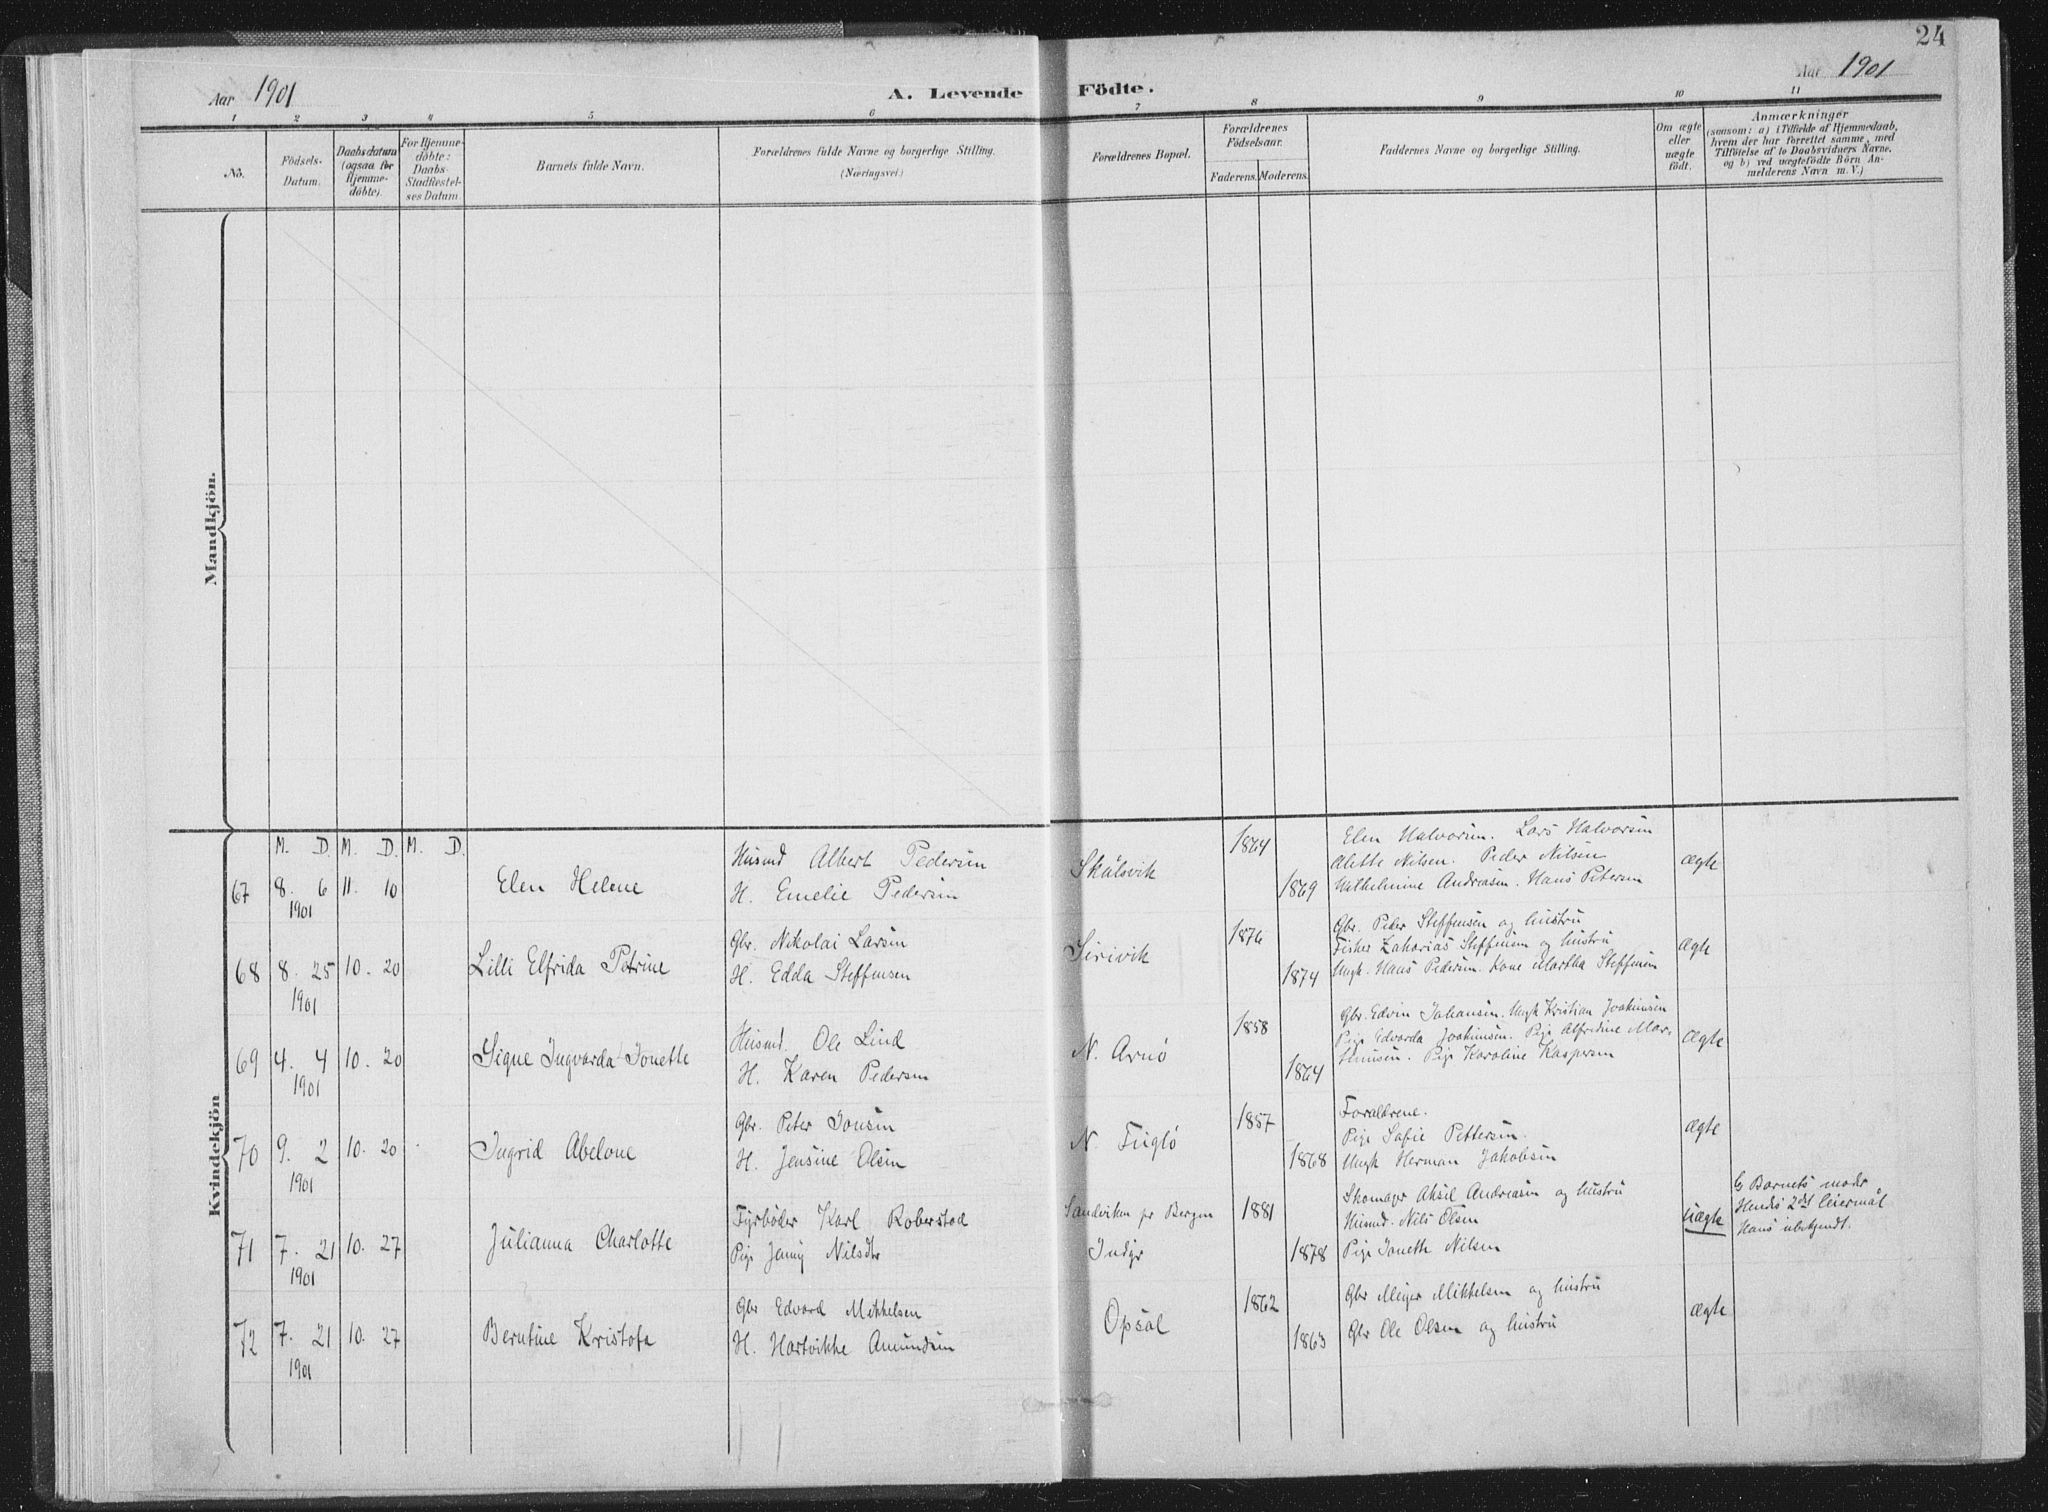 24
Aar 1901
A. Levende Födte.
Aar 1901
1 2 3 4 5 6 7 8 9 10 11
No.
Födsels-
Datum.
Daabsdatum
(ogsaa for
Hjemme-
döbte).
For Hjemme-
döbte:
Daabs-
Stadfæstel-
ses Datum.
Barnets fulde Navn.
Forældrenes fulde Navne og borgerlige Stilling.
(Næringsvei.)
Forældrenes Bopæl.
Forældrenes
Födselsaar.
Faderens. Moderens.
Faddernes Navne og borgerlige Stilling.
Om ægte
eller
uægte
födt.
Anmærkninger
(saasom: a) i Tilfælde af Hjemmedaab,
hvem der har forrettet samme, med
Tilföielse af to Daabsvidners Navne.
og b) ved uægtefödte Börn An-
melderens Navn m. V.)
Mandkjön.
Kvindekjön
M. D. M. D. M. D.
67 8. 6 11. 10
1901
Elen Helene
Husmd Albert Pedersen
H. Emelie Pedersen
Skålsvik
1864
1869
Elen Halvorsen. Lars Halvorsen
Alette Nilsen. Peder Nilsen
Wilhelmine Andreasen. Hans Petersen
ægte
68 8. 25 10. 20
1901
Lilli Elfrida Petrine
Gbr. Nikolai Larsen
H. Edda Steffensen
Sirivik
1876
1874
Gbr. Peder Steffensen og hustru
Fisker Zakarias Steffensen og hustru
Ungk. Hans Pedersen. Kone Martha Steffensen
ægte
69 4. 4 10. 20
1901
Signe Ingvarda Jonette
Husmd. Ole Lind
H. Karen Pedersen
N. Arnö
1858
1864
Gbr. Edvin Johansen. Ungk Kristian Joakimsen
Pige Edvarda Joakimsen. Pige Alfredine Mar-
thinsen. Pige Karoline Kaspersen
ægte
70 9. 2 10. 20
1901
Ingrid Abelone
Gbr. Peter Jonsen
H. Jensine Olsen
N. Fuglö
1857
1868
Forældrene.
Pige Sofie Pettersen.
Ungk Herman Jakobsen
ægte
71 7. 21 10. 27
1901
Julianna Charlotte
Fyrböder Karl Roberstad
Pige Jenny Nilsdtr
Sandviken pr Bergen
Indyr
1881
1878
Skomager Aksel Andreasen og hustru
Husmd. Nils Olsen
Pige Joneth Nilsen
uægte
Barnets moder
Hendes 2det leiermål
Hans ubekjendt.
72 7. 21 10. 27
1901
Berntine Kristofa
Gbr Edvard Mikkelsen
H. Hartvikke Amundsen
Opsal
1862
1863
Gbr Meyer Mikkelsen og hustru
Gbr Ole Olsen og hustru
ægte